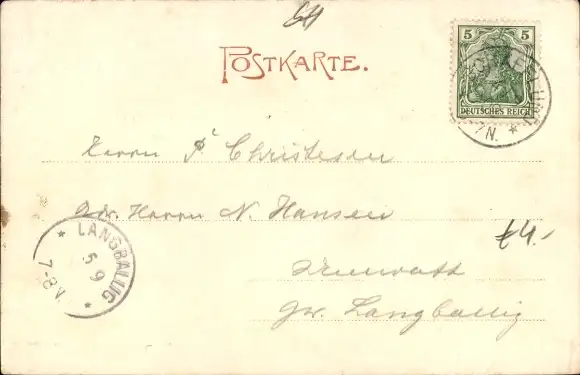 POSTKARTE.
5 5
DEUTSCHES REICH
Herrn P Christesen
Adr. Herrn N. Hansen
LANGBALLIG
5 9
7-8 N.
£4.-
Langballig